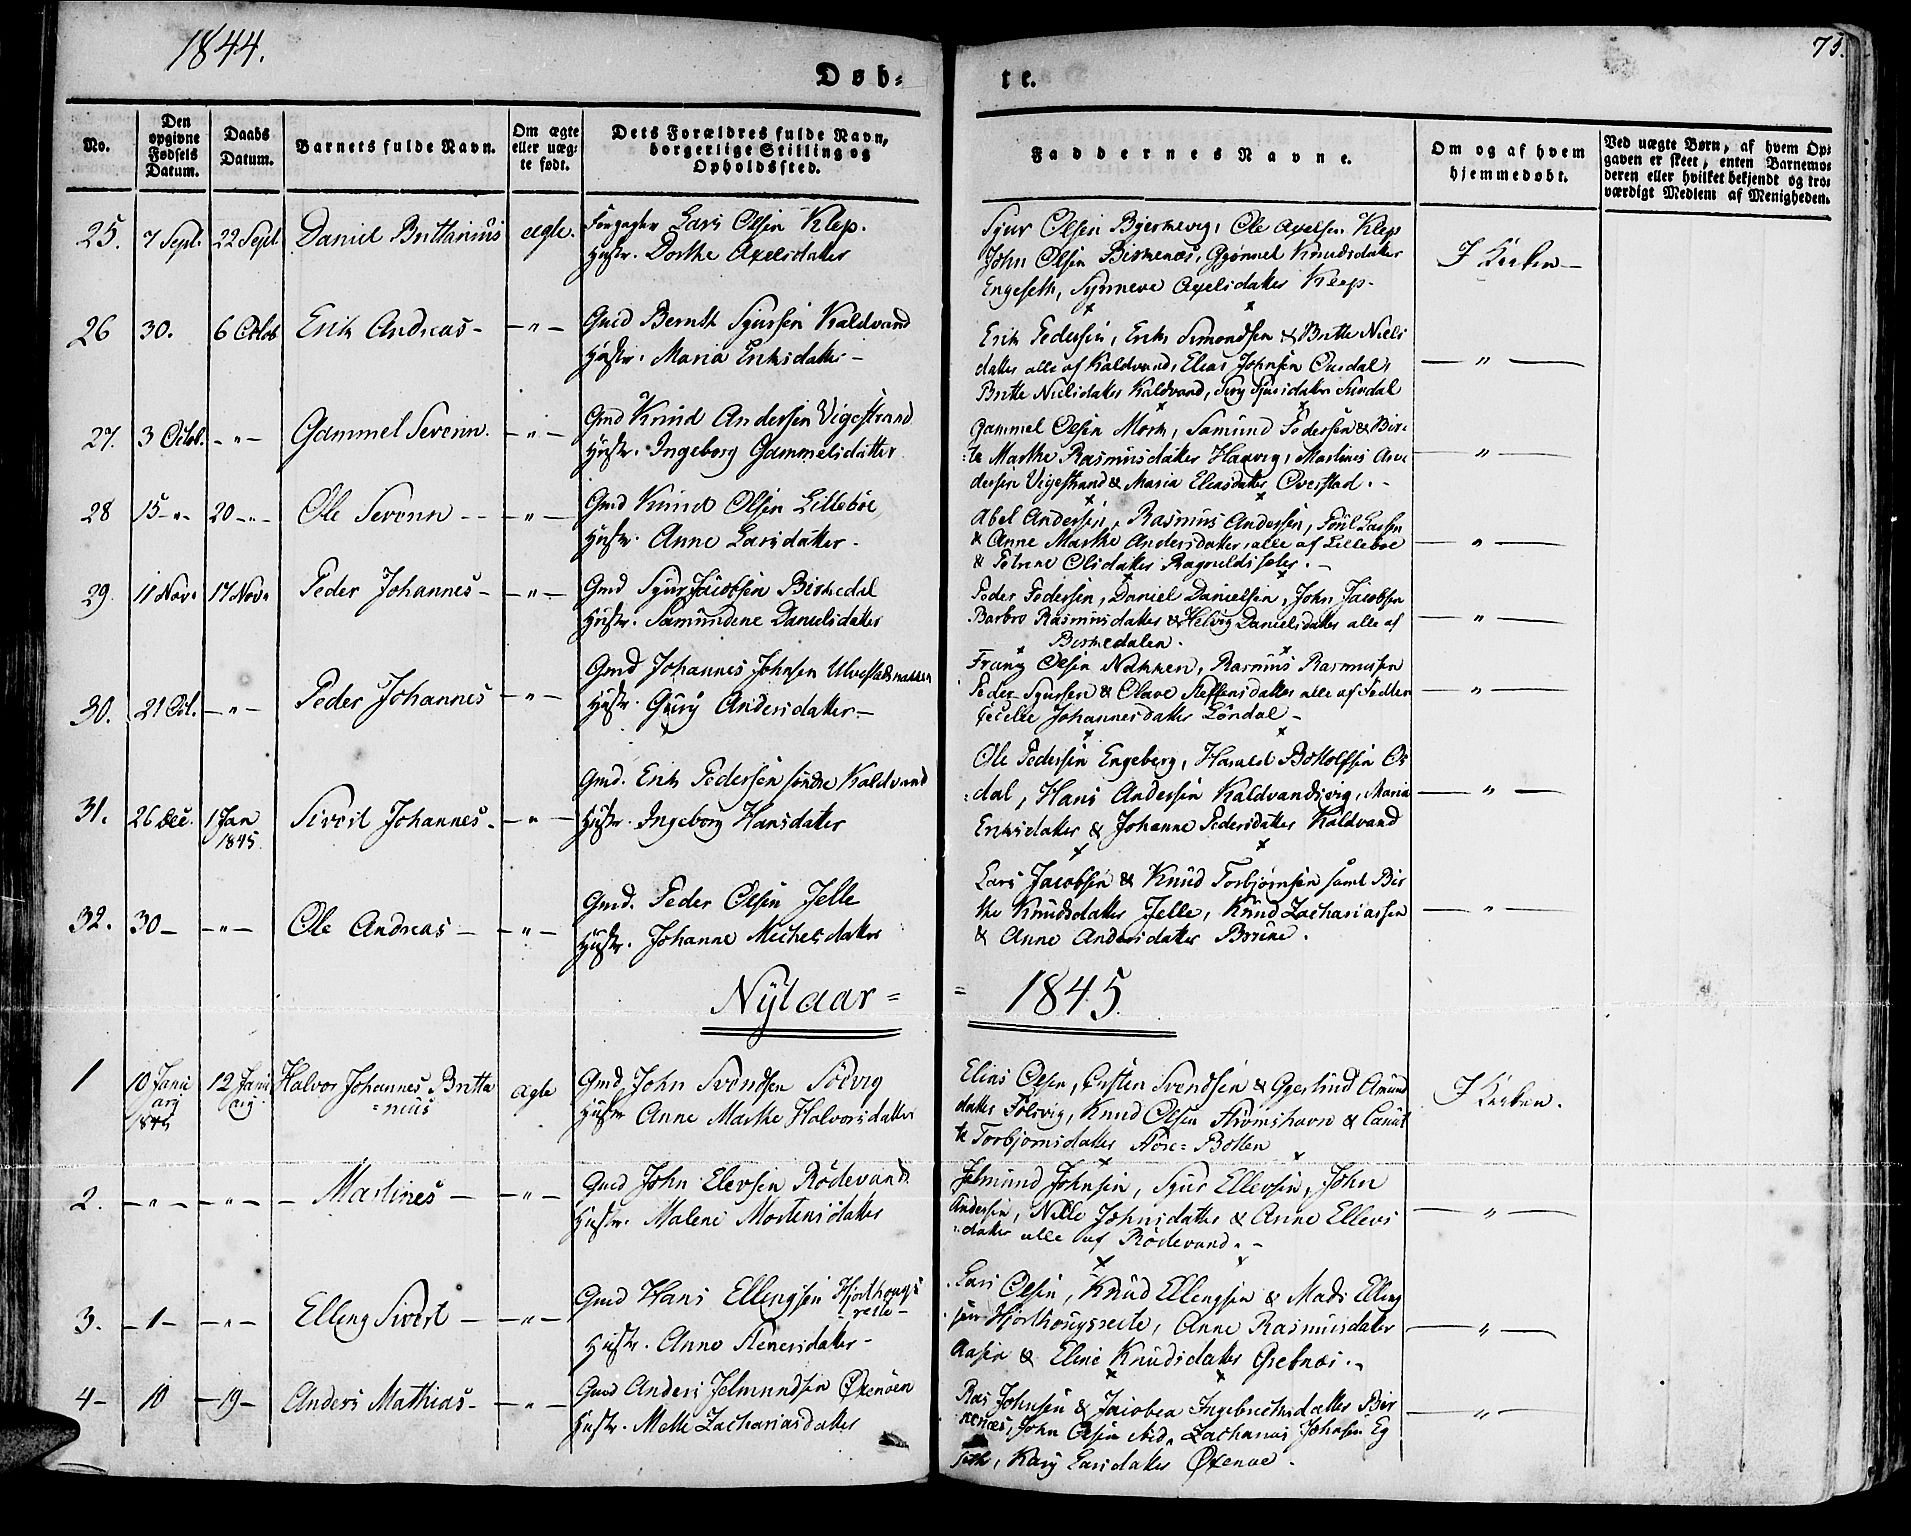 1844.
75.
Døb-
te.
No.
Den opgivne Fødsels Datum.
Daabs Datum.
Barnets fulde Navn.
Om ægte eller uægte født.
Dets Forældres fulde Navn, borgerlige Stilling og Opholdsfted.
Faddernes Navne.
Om og af hvem hjemmedøbt.
Ved uægte Børn, af hvem Opgaven er skeet, enten Barnemoderen eller hvilket bekjendt og troværdigt Medlem af Menigheden.
25. 7 Sept. 22 Sept Daniel Brittanius ægte. Lars Olsen Klep.
Hustr. Dorthe Axelsdatter
Sjur Olsen Ole Axelsen Klep
John Olsen Birkenæs, Gjønnel Knudsdatter
Engeseth, Synneve Axelsdatter Klep.
I Kirken –
26 30. 6 Octob Erik Andreas – – " – Gmd Bernth Sjursen Kaldvand
Hustr. Maria Eriksdatter –
Erik Pedersen, Erik Simondsen & Britte Niels
datter alle af Kaldvand, Elias Johnsen Osdal,
Britte Nielsdatter Kaldvand,
– " –
27. 3 Octob. – " – Gammel Severin. – " – Gmd Knud Andersen Vigestrand
Hustr. Ingeborg Gammelsdatter
Gammel Olsen Mork, Samund Pedersen & Bir-
te Marthe Rasmusdatter Martines An-
dersen Vigestrand & Maria Eliasdatter Overstad. –
– " –
28 15 – " – 20 – " – Ole Severin – – – " – Gmd Knud Olsen Lillebøe
Hustr. Anne Larsdatter –
Abel Andersen, Rasmus Andersen, Poul Larsen
& Anne Marthe Andersdatter, alle af Lillebøe
& Petrine Olsdatter
– " –
29. 11 Nov. 17 Nov. Peder Johannes – – " – Gmd Sjur Jacobsen Birkedal
Hustr. Samundene Danielsdatter
Peder Pedersen, Daniel Danielsen, John Jacobsen
Barbro Rasmusdatter & Helvig Danielsdatter alle af
Birkedalen.
– " –
30. 21 Oct. – " – Peder Johannes – " – Gmd Johannes Johnsen
Hustr. Gury Andersdatter. –
Franz Olsen Nakken, Rasmus Rasmussen
Peder Sjursen & Olave Steffensdatter alle af
Johannesdatter Løndal –
– " –
31. 26 Dec. 1 Jan 1845. Sivert Johannes – – " – Gmd. Erik Pedersen søndre Kaldvand
Hustr. Ingeborg Hansdatter
Ole Pedersen Engeberg, Harald Bottolfsen Os
dal, Hans Andersen Kaldvandsvig, Maria
Eriksdatter & Johanne Pedersdatter Kaldvand
– " –
32. 30 – – " – Ole Andreas – – " – Gmd. Peder Olsen Jelle
Hustr. Johanne Michelsdatter
Lars Jacobsen & Knud Torbjørnsen samt Bir
the Knudsdatter Jelle, Knud Zachariassen
& Anne Andersdatter Brune.
– " –
Nytaar =
= 1845.
1 10 Janu
ary
1845 12 Janu
ary. Halvor Johannes Britta
=nius ægte Gmd, John Svendsen Solvig
Hustr Anne Marthe Halvorsdatter
Elias Olsen, Svendsen & Gjertrud Amund
datter Solvig, Knud Olsen Strømshavn &
Torbjørnsdatter Store = Botten
I Kirken.
2. – " – – " – – Martines – – " – Gmd John Elevsen Rødevand
Hustr. Malene Mortensdatter
Jetmund Johnsen, Sjur Ellevsen, John
Andersen, Nille Johnsdatter & Anne Ellevs
datter alle af Rødevand. –
– " –
3. – 1 – – " – Elling Sivert – – " – Gmd Hans Ellingsen Hjorthougs
reite –
Hustr. Anne Stenersdatter –
Lars Olsen, Knud Ellengsen & Mads Elling
sen Hjorthougsreite, Anne Rasmusdatter
Aasen & Eline Knudsdatter Grebnæs. –
– " –
4 – 10 – 19 – Anders Mathias – – " – Gmd Anders Jetmundsen Øxenøen
Hustr. Mette Zachariasdatter
Ras Johnsen & Jacobea Ingebrethsdatter Bir
kenæs, John Olsen ibid, Zacharias Johnsen Eg
seth, Kary Larsdatter Øxenøe.
– " –